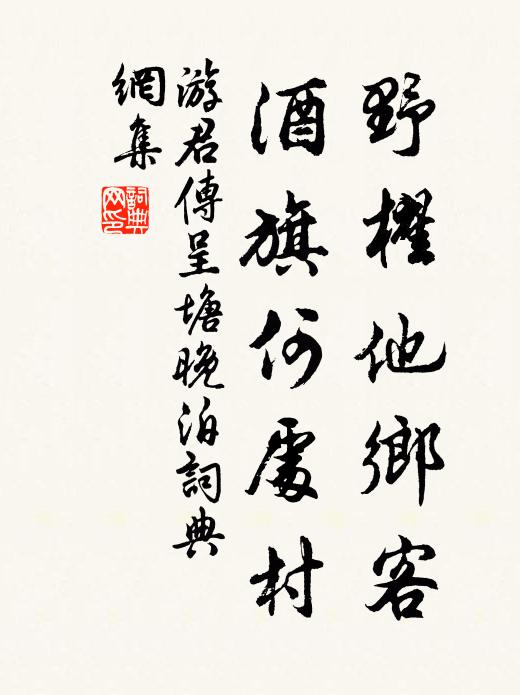 野櫂他鄉客
酒旗何處村
游君傳呈塘晚泊詞典
網集
詞典
网印